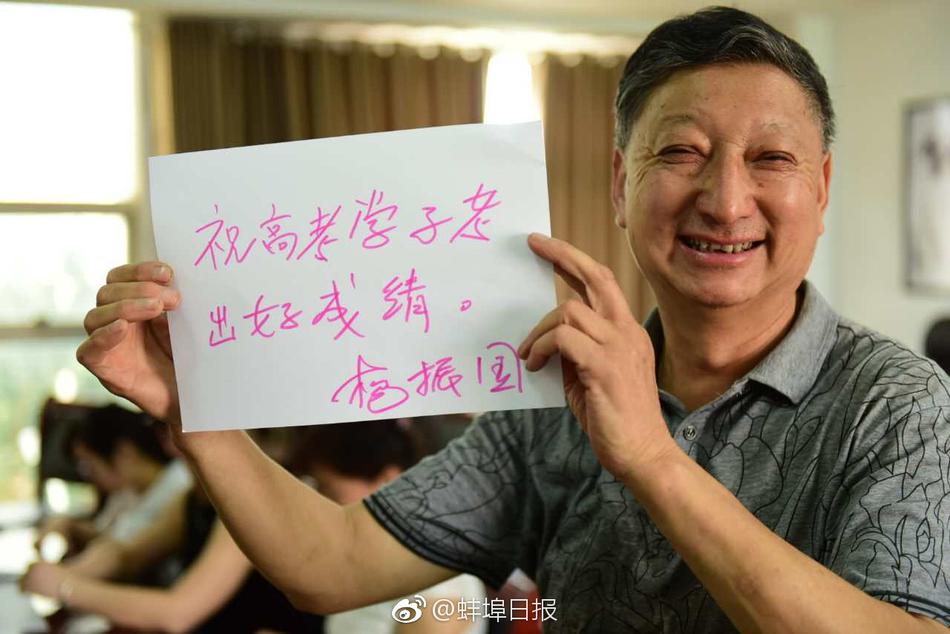 祝高考学子考
出好成绩。
杨振国
@蚌埠日报